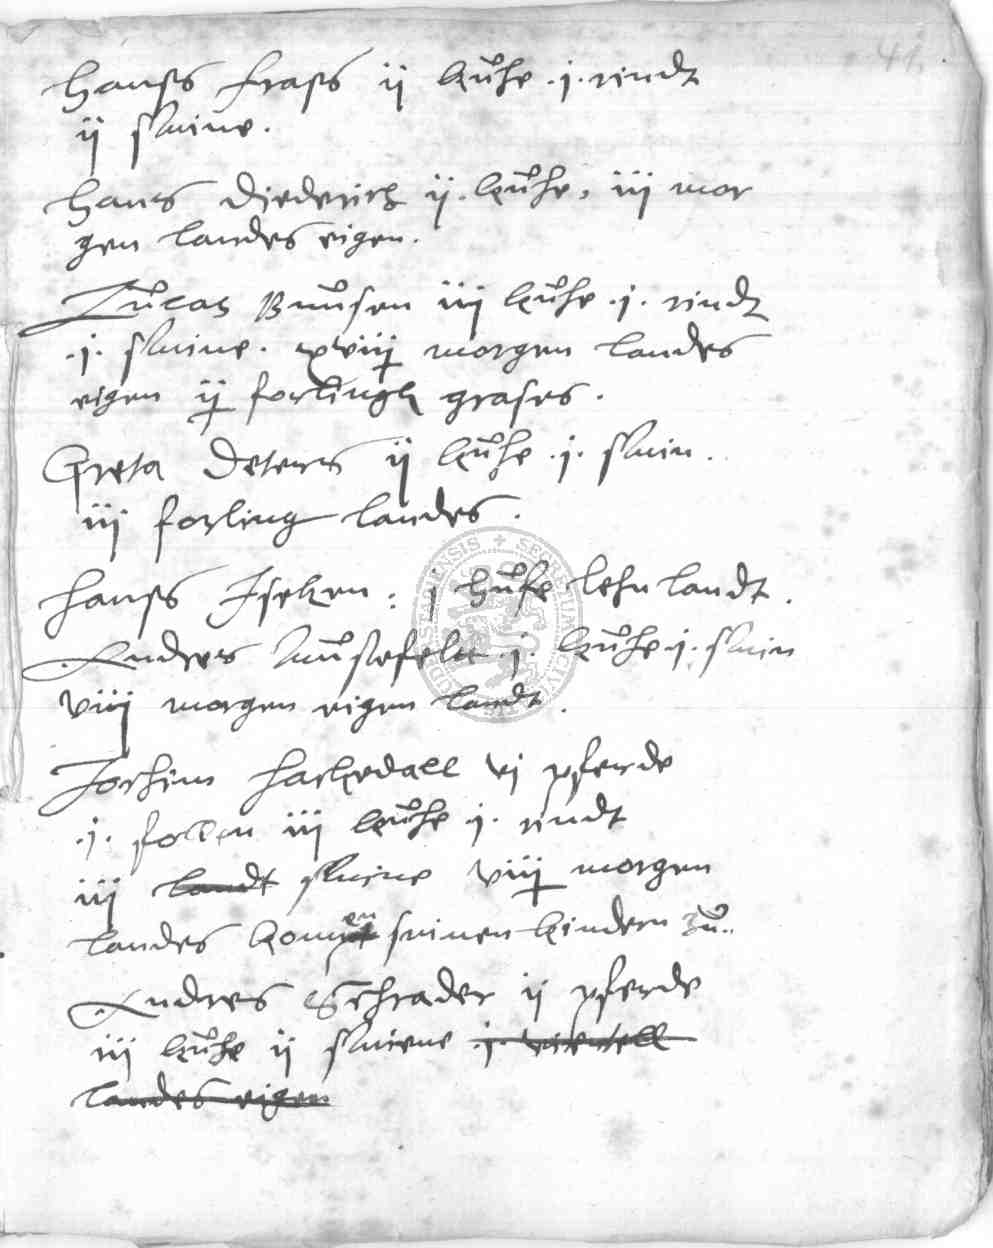 41.
Hanss frass ij kuͦhe .j. rindt
ij swine.
Hans Diederich ij. kuͦhe, iij mor
gen landes eigen.
Luͦcas Buuͦsen iij kuͦhe .j. rindt
.j. swine. xviij morgen landes
eigen ij forlingk grases.
Greta Deters ij kuͦhe .j. swin.
iij forling landes.
Hanss Iseken. j huͦfe lehn landt.
Andres Muͦsefelt .j. kuͦhe .j. swin
viij morgen eigen landt.
Jochim Harkedall vj pferde
.j. follen iij kuͦhe .j. rindt
iij landt swine viij morgen
landes komen seinen kindern zuͦ..
Andres Schrader ij pferde
iij kuͦhe ij swiene .j. viertell
landes eigen